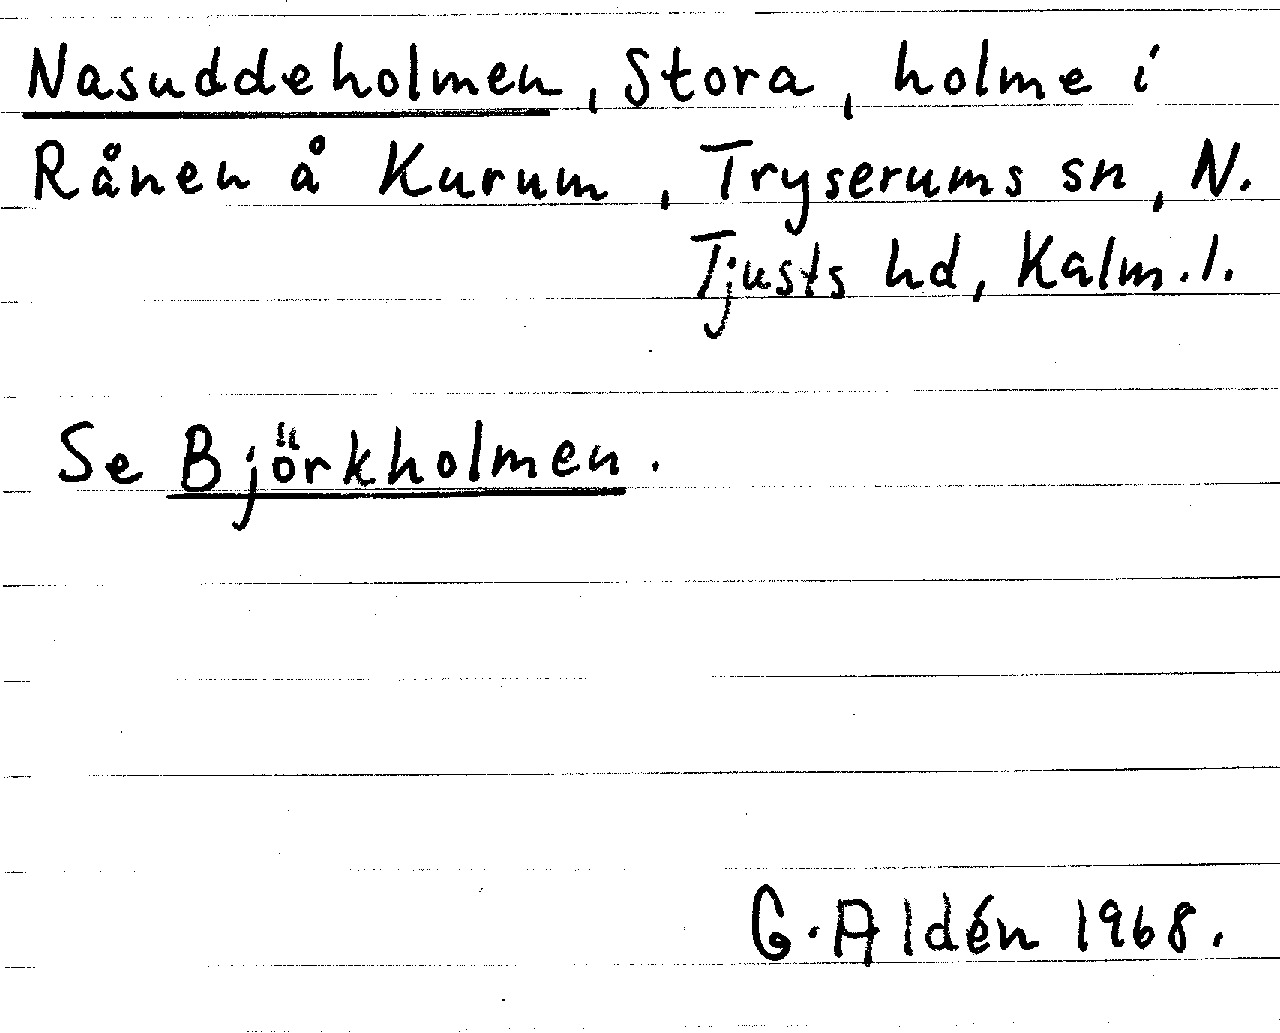 Nasuddeholmen, Stora, holme i
Rånen å Kurum, Tryserums sn, N.
Tjusts hd, Kalm. l.
Se Björkholmen.
G. Aldén 1968.